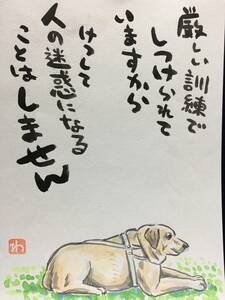 厳しい訓練で
しつけられて
いますから
けっして
人の迷惑になる
ことはしません
わ